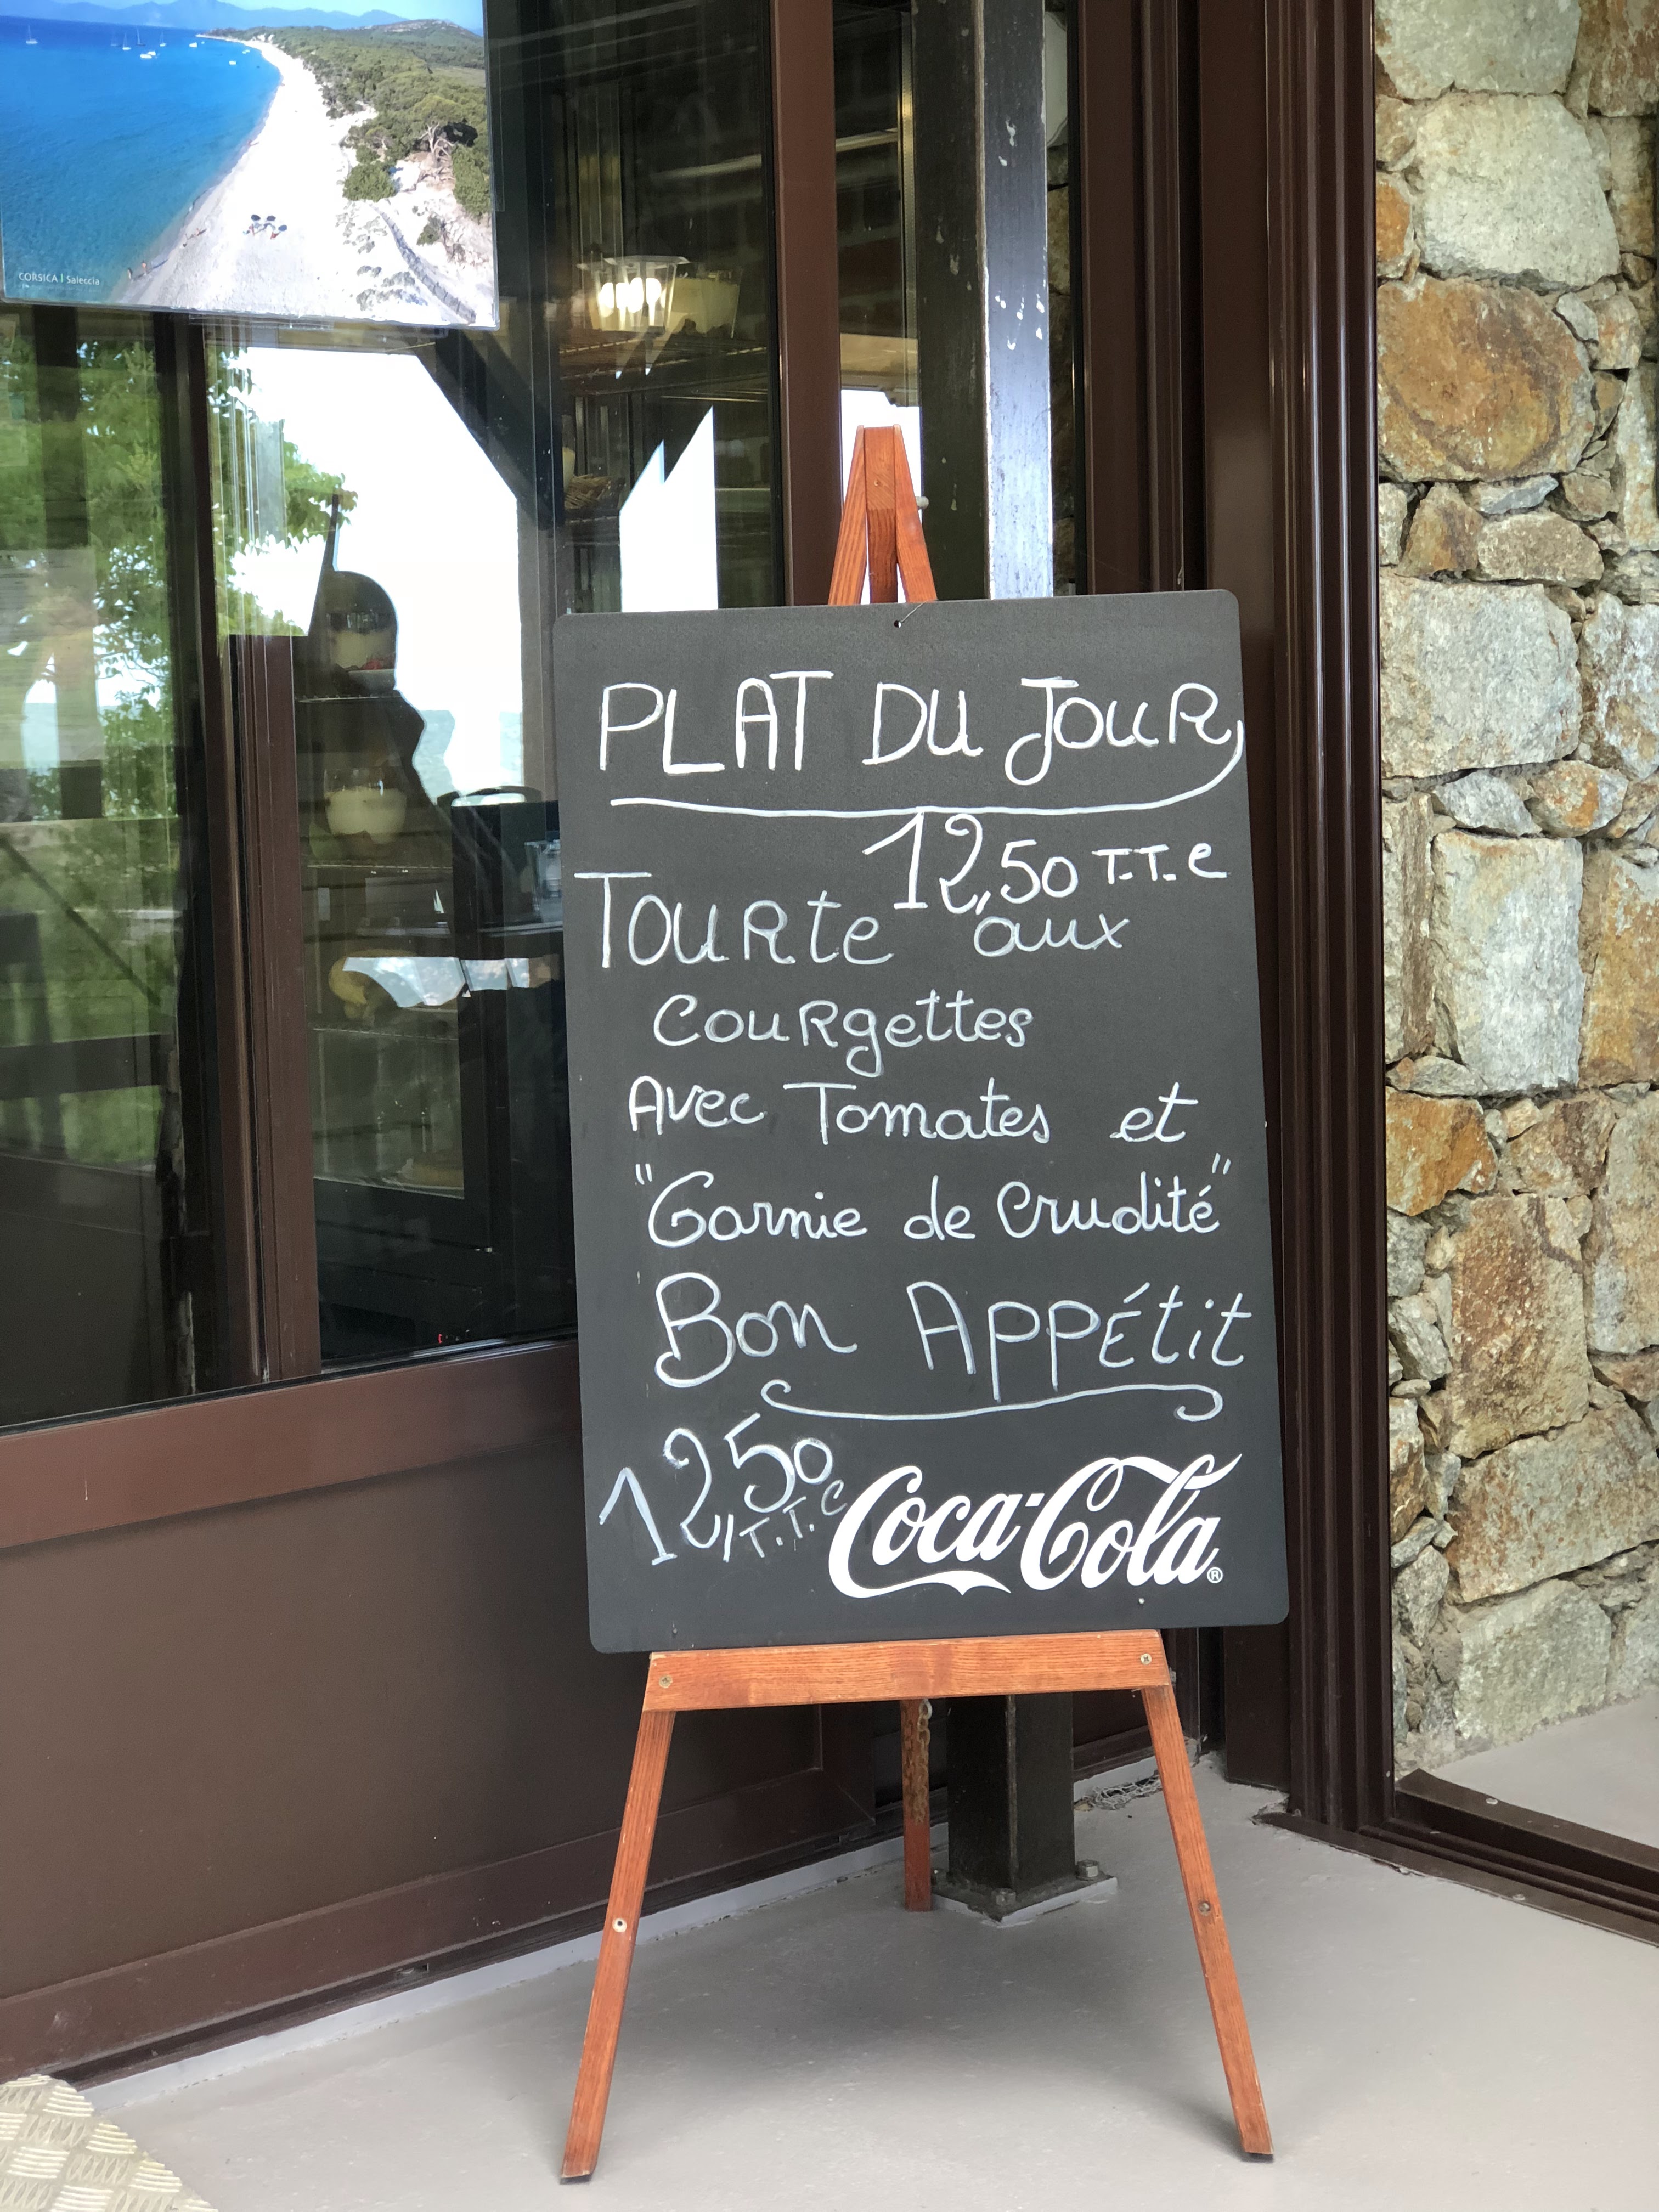 CORSICA | Saleccia
PLAT DU JOUR
12,50 T.T.C
Tourte aux
Courgettes
Avec Tomates et
"Garnie de Crudité"
Bon Appétit
12,50
T.T.C
Coca-Cola®